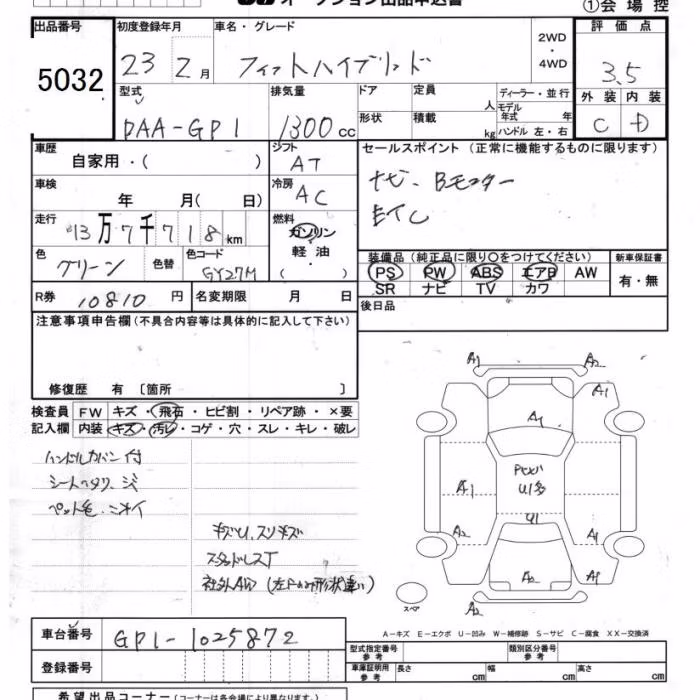 オークション出品申込書
①会場控
出品番号 5032
初度登録年月 23 2月
車名・グレード フィットハイブリッド
2WD・4WD
評価点 3.5
外装 C 内装 D
型式 DAA-GP1
排気量 1300cc
ドア 定員 人
形状 積載 kg
ディーラー・並行
モデル年式 年
ハンドル 左・右
車歴 自家用・( )
シフト AT
車検 年 月( 日)
冷房 AC
セールスポイント (正常に機能するものに限ります)
ナビ、Bモニター
ETC
走行 13万7千718km
燃料 ガソリン 軽油 ・( )
色 グリーン 色替 色コード GY27M
装備品 (純正品に限り○をつけてください) 新車保証書
PS PW ABS エアB AW 有・無
SR ナビ TV カワ
R券 10810円 名変期限 月 日
後日品
注意事項申告欄(不具合内容等は具体的に記入して下さい)
修復歴 有 〔箇所 〕
検査員 FW キズ・飛石・ヒビ割・リペア跡・×要
記入欄 内装 キズ・汚レ・コゲ・穴・スレ・キレ・破レ
ハンドルカバー付
シートヘタリ、シミ
ペット毛、ニオイ
キズU、スリキズ
スタッドレスT
社外AW
A1 A2
A1
A1
A1 U1多
U1
A2 A1
A2 A1
A2
スペア
A−キズ E−エクボ U−凹み W−補修跡 S−サビ C−腐食 XX−交換済
車台番号 GP1-1025872
登録番号
型式指定番号 参考 類別区分番号 参考
車庫証明用 参考 長さ cm 幅 cm 高さ cm
希望出品コーナー (コーナーは各会場により異なります。)